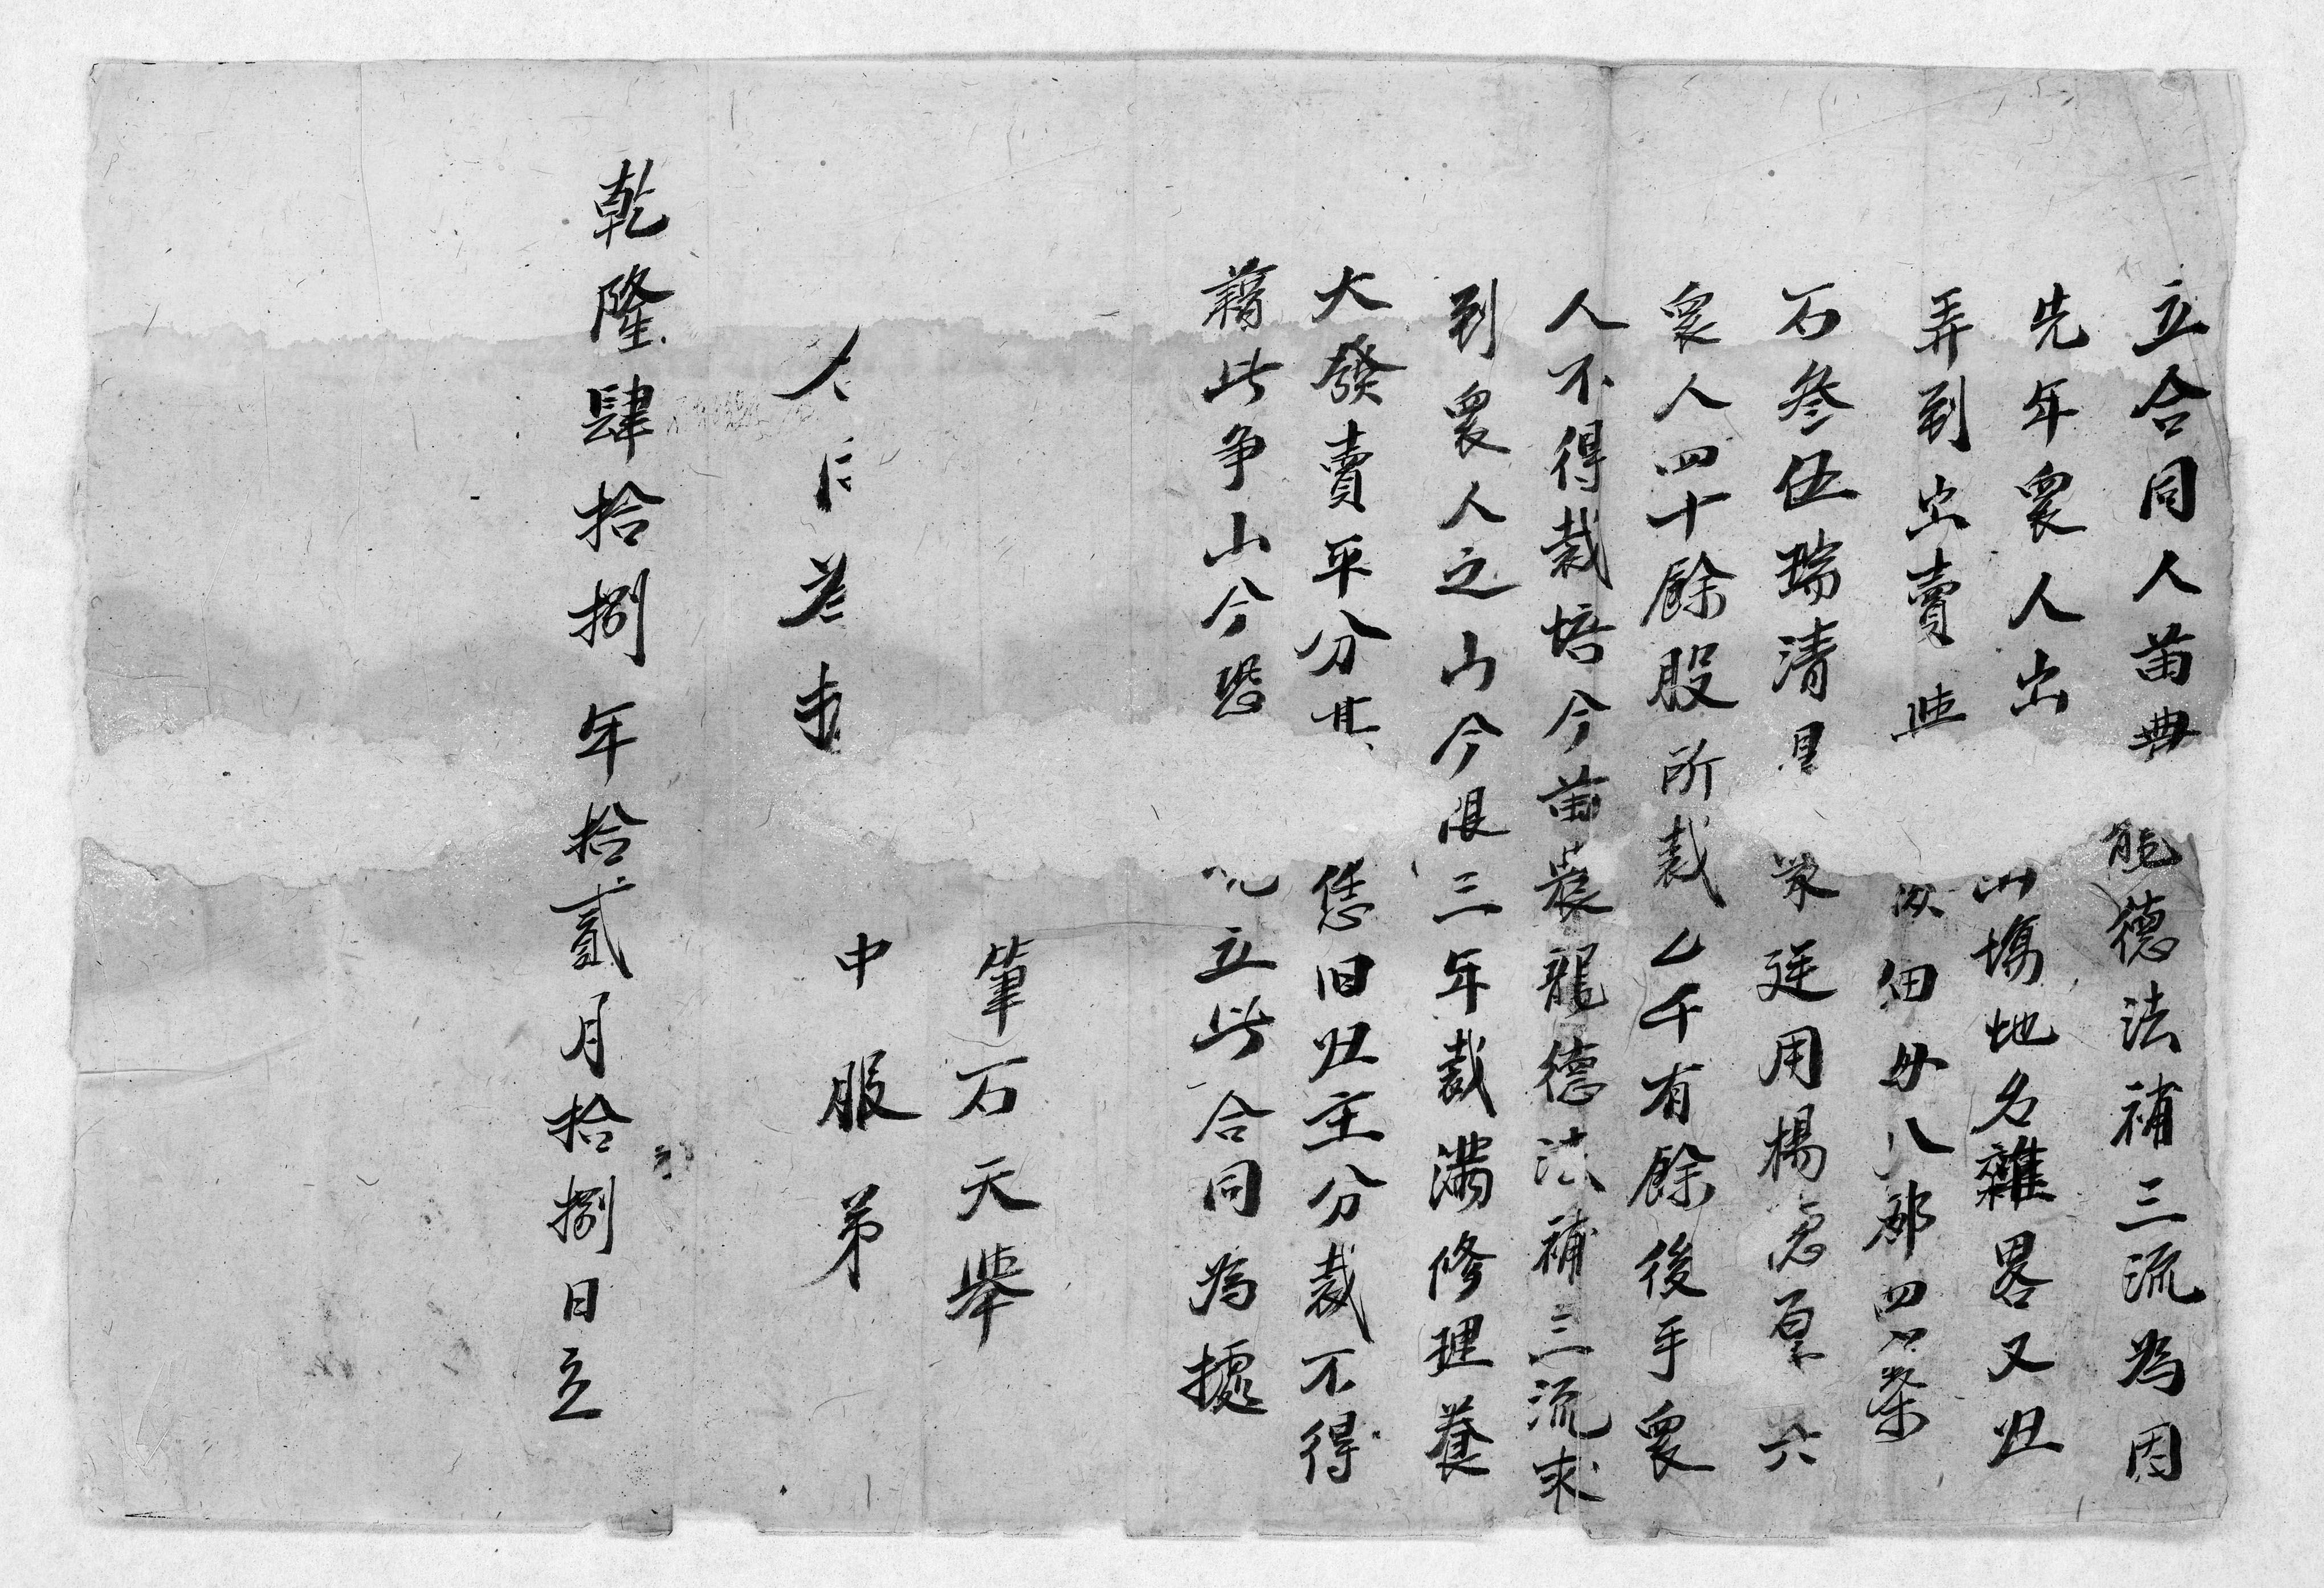 立合同人苗典能德法補三流為因
先年眾人出山塲地名雜畧又归
弄到出賣佃廿八郎四
石叁伍瑞清廷用楊六
眾人四十餘股所栽乙千有餘後手眾
人不得栽培今苗晨龍德法補三流求
到眾人之山今限三年栽滿修理養
大發賣平分其恁旧归主分栽不得
藉此争山今恐立此合同為據
筆石天舉
中服弟
乾隆肆拾捌年拾貳月拾捌日立